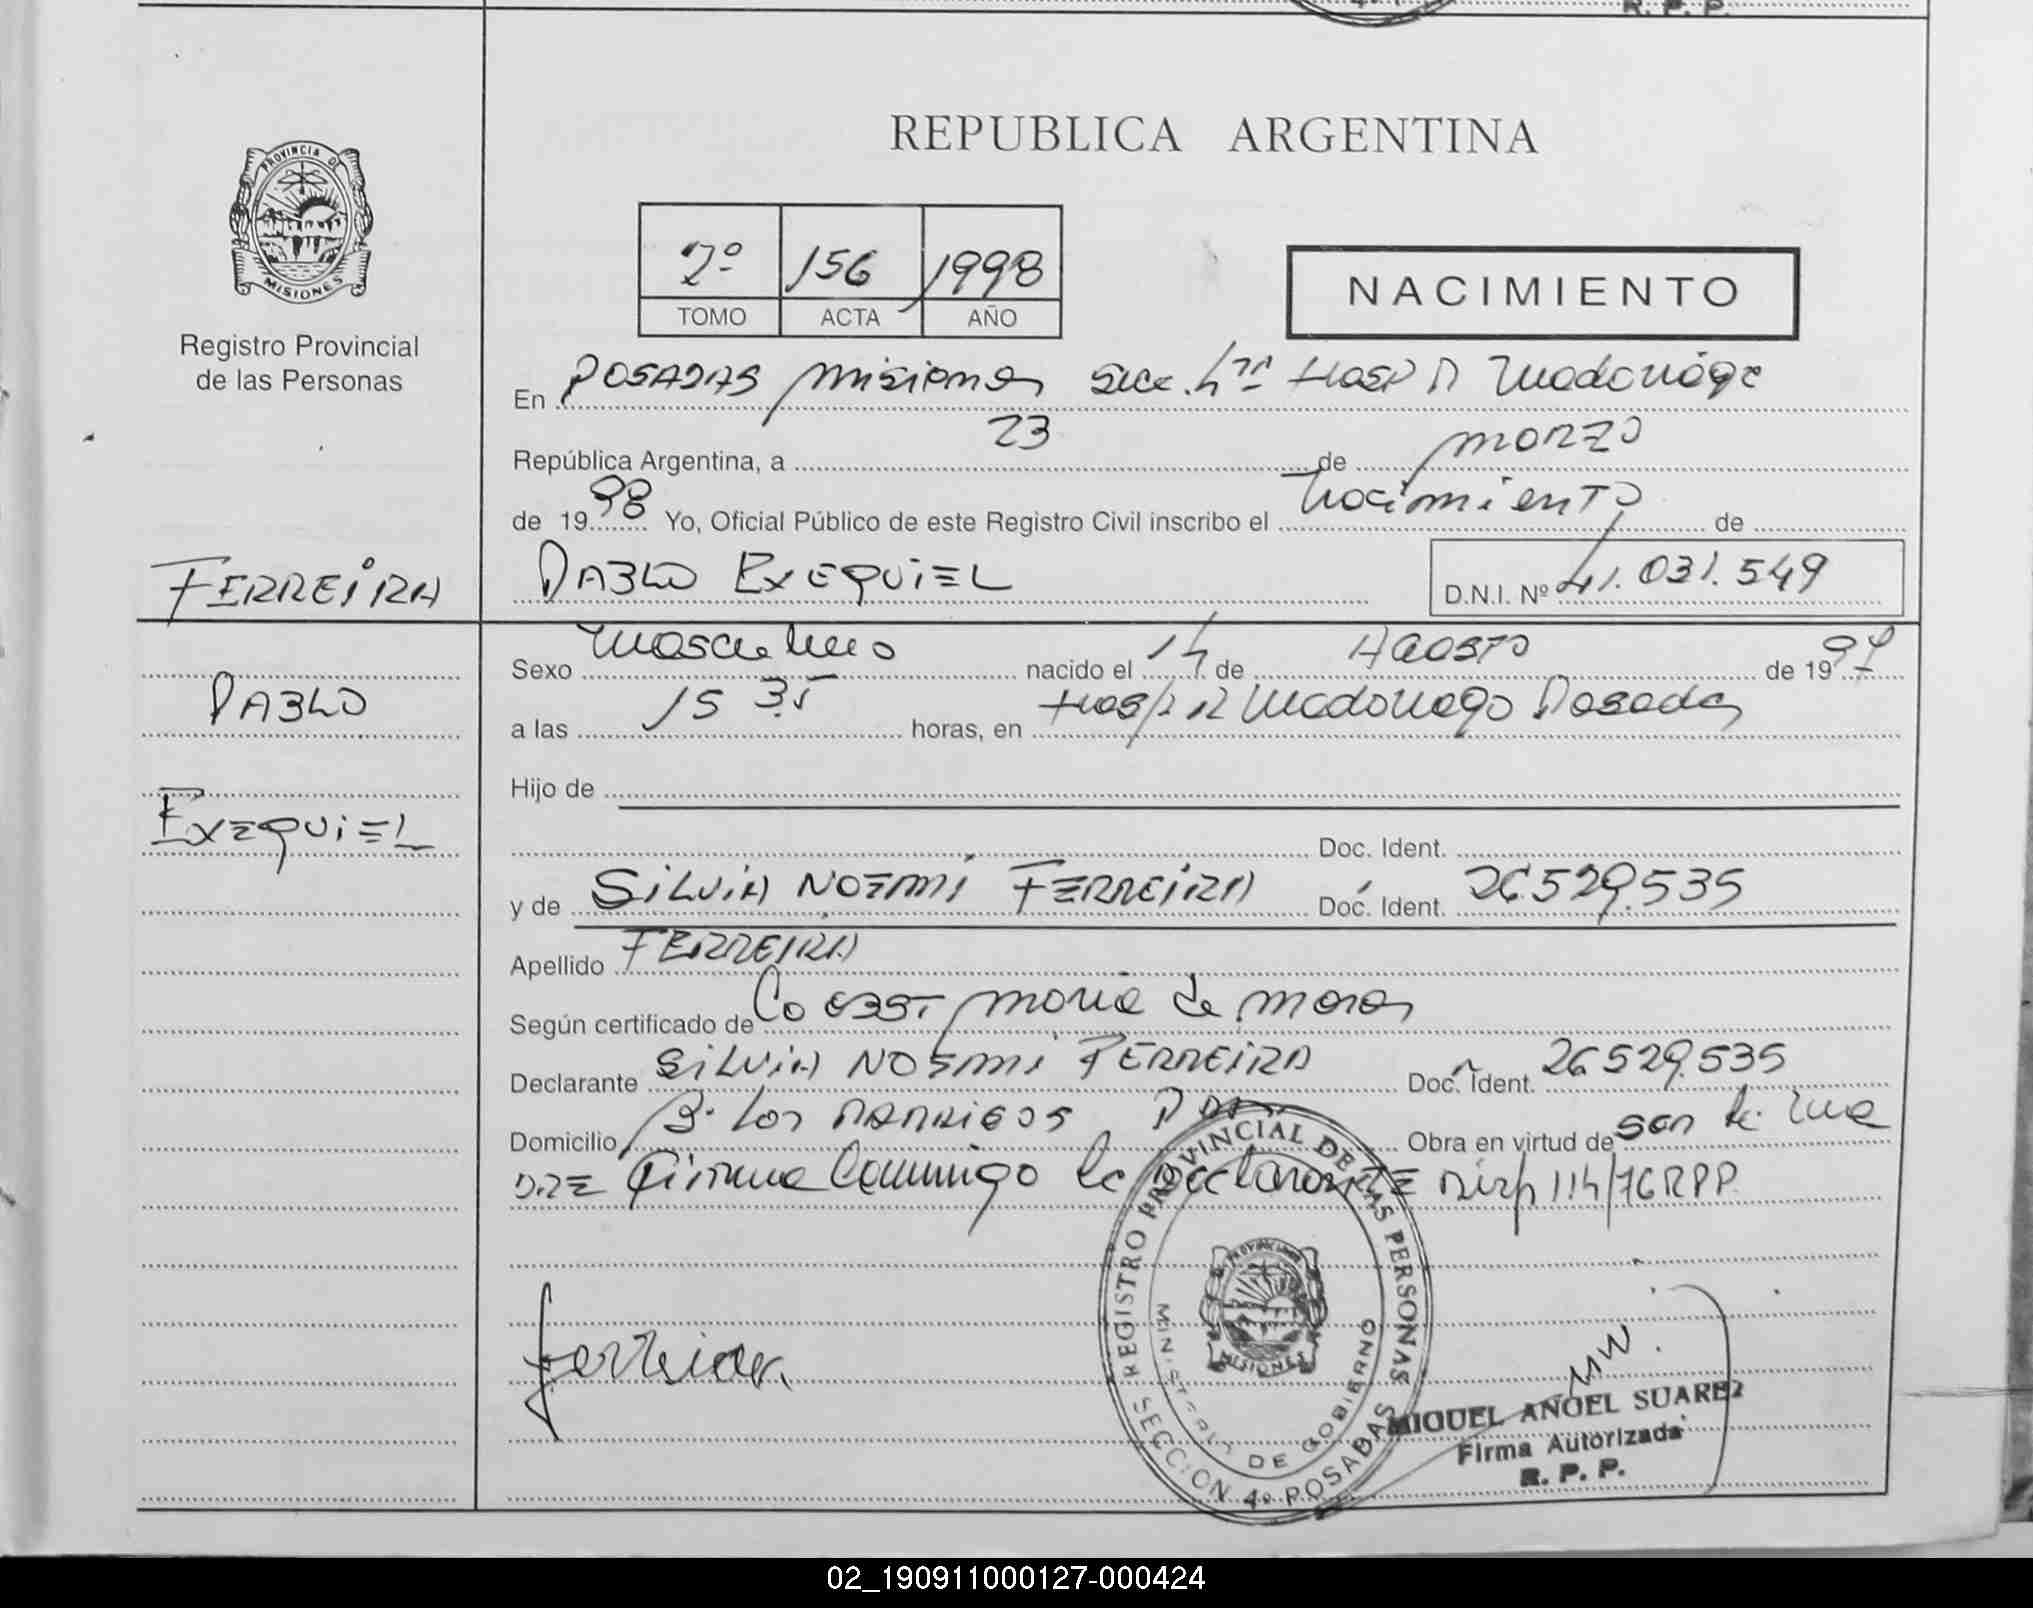 R. P. P.
REPUBLICA ARGENTINA
PROVINCIA DE
MISIONES
Registro Provincial
de las Personas
2º 156 1998
TOMO ACTA AÑO
NACIMIENTO
En POSADAS misiones secc. 4ta Hosp R Madariaga
República Argentina, a 23 de marzo
de 1998 Yo, Oficial Público de este Registro Civil inscribo el Nacimiento de
FERREIRA
PABLO EXEQUIEL D.N.I. Nº 41.031.549
PABLO
EXEQUIEL
Sexo masculino nacido el 14 de AGOSTO de 1997
a las 15 35 horas, en Hosp R Madariaga Posadas
Hijo de
Doc. Ident.
y de SILVIA NOEMI FERREIRA Doc. Ident. 26.529.535
Apellido FERREIRA
Según certificado de Co obst maria de
Declarante SILVIA NOEMI FERREIRA Doc. Ident. 26.529.535
Domicilio B. Los Pdas Obra en virtud de ser la ma
DRE firma conmigo la Declarante Disp 114/76 RPP
Ferreira
REGISTRO PROVINCIAL DE LAS PERSONAS
MINISTERIO DE GOBIERNO
SECCION 4º POSADAS
PROVINCIA DE
MISIONES
MIGUEL ANGEL SUAREZ
Firma Autorizada
R. P. P.
02_190911000127-000424